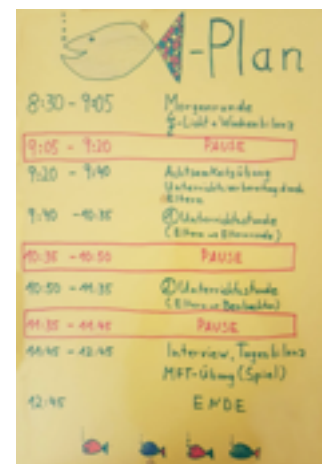 -Plan
8:30 - 9:05 Morgenrunde
-Licht + Wochenbilanz
9:05 - 9:20 PAUSE
9:20 - 9:40 Achtsamkeitsübung
Unterrichtsvorbereitung durch
Eltern
9:40 - 10:35 ① Unterrichtsstunde
(Eltern in Elternrunde)
10:35 - 10:50 PAUSE
10:50 - 11:35 ② Unterrichtsstunde
(Eltern als Beobachter)
11:35 - 11:45 PAUSE
11:45 - 12:45 Interview, Tagesbilanz
MFT-Übung (Spiel)
12:45 ENDE